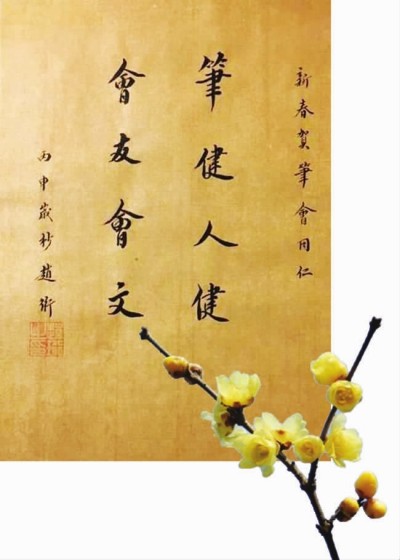 新春賀筆會同仁
筆健人健
會友會文
丙申歲杪趙衡